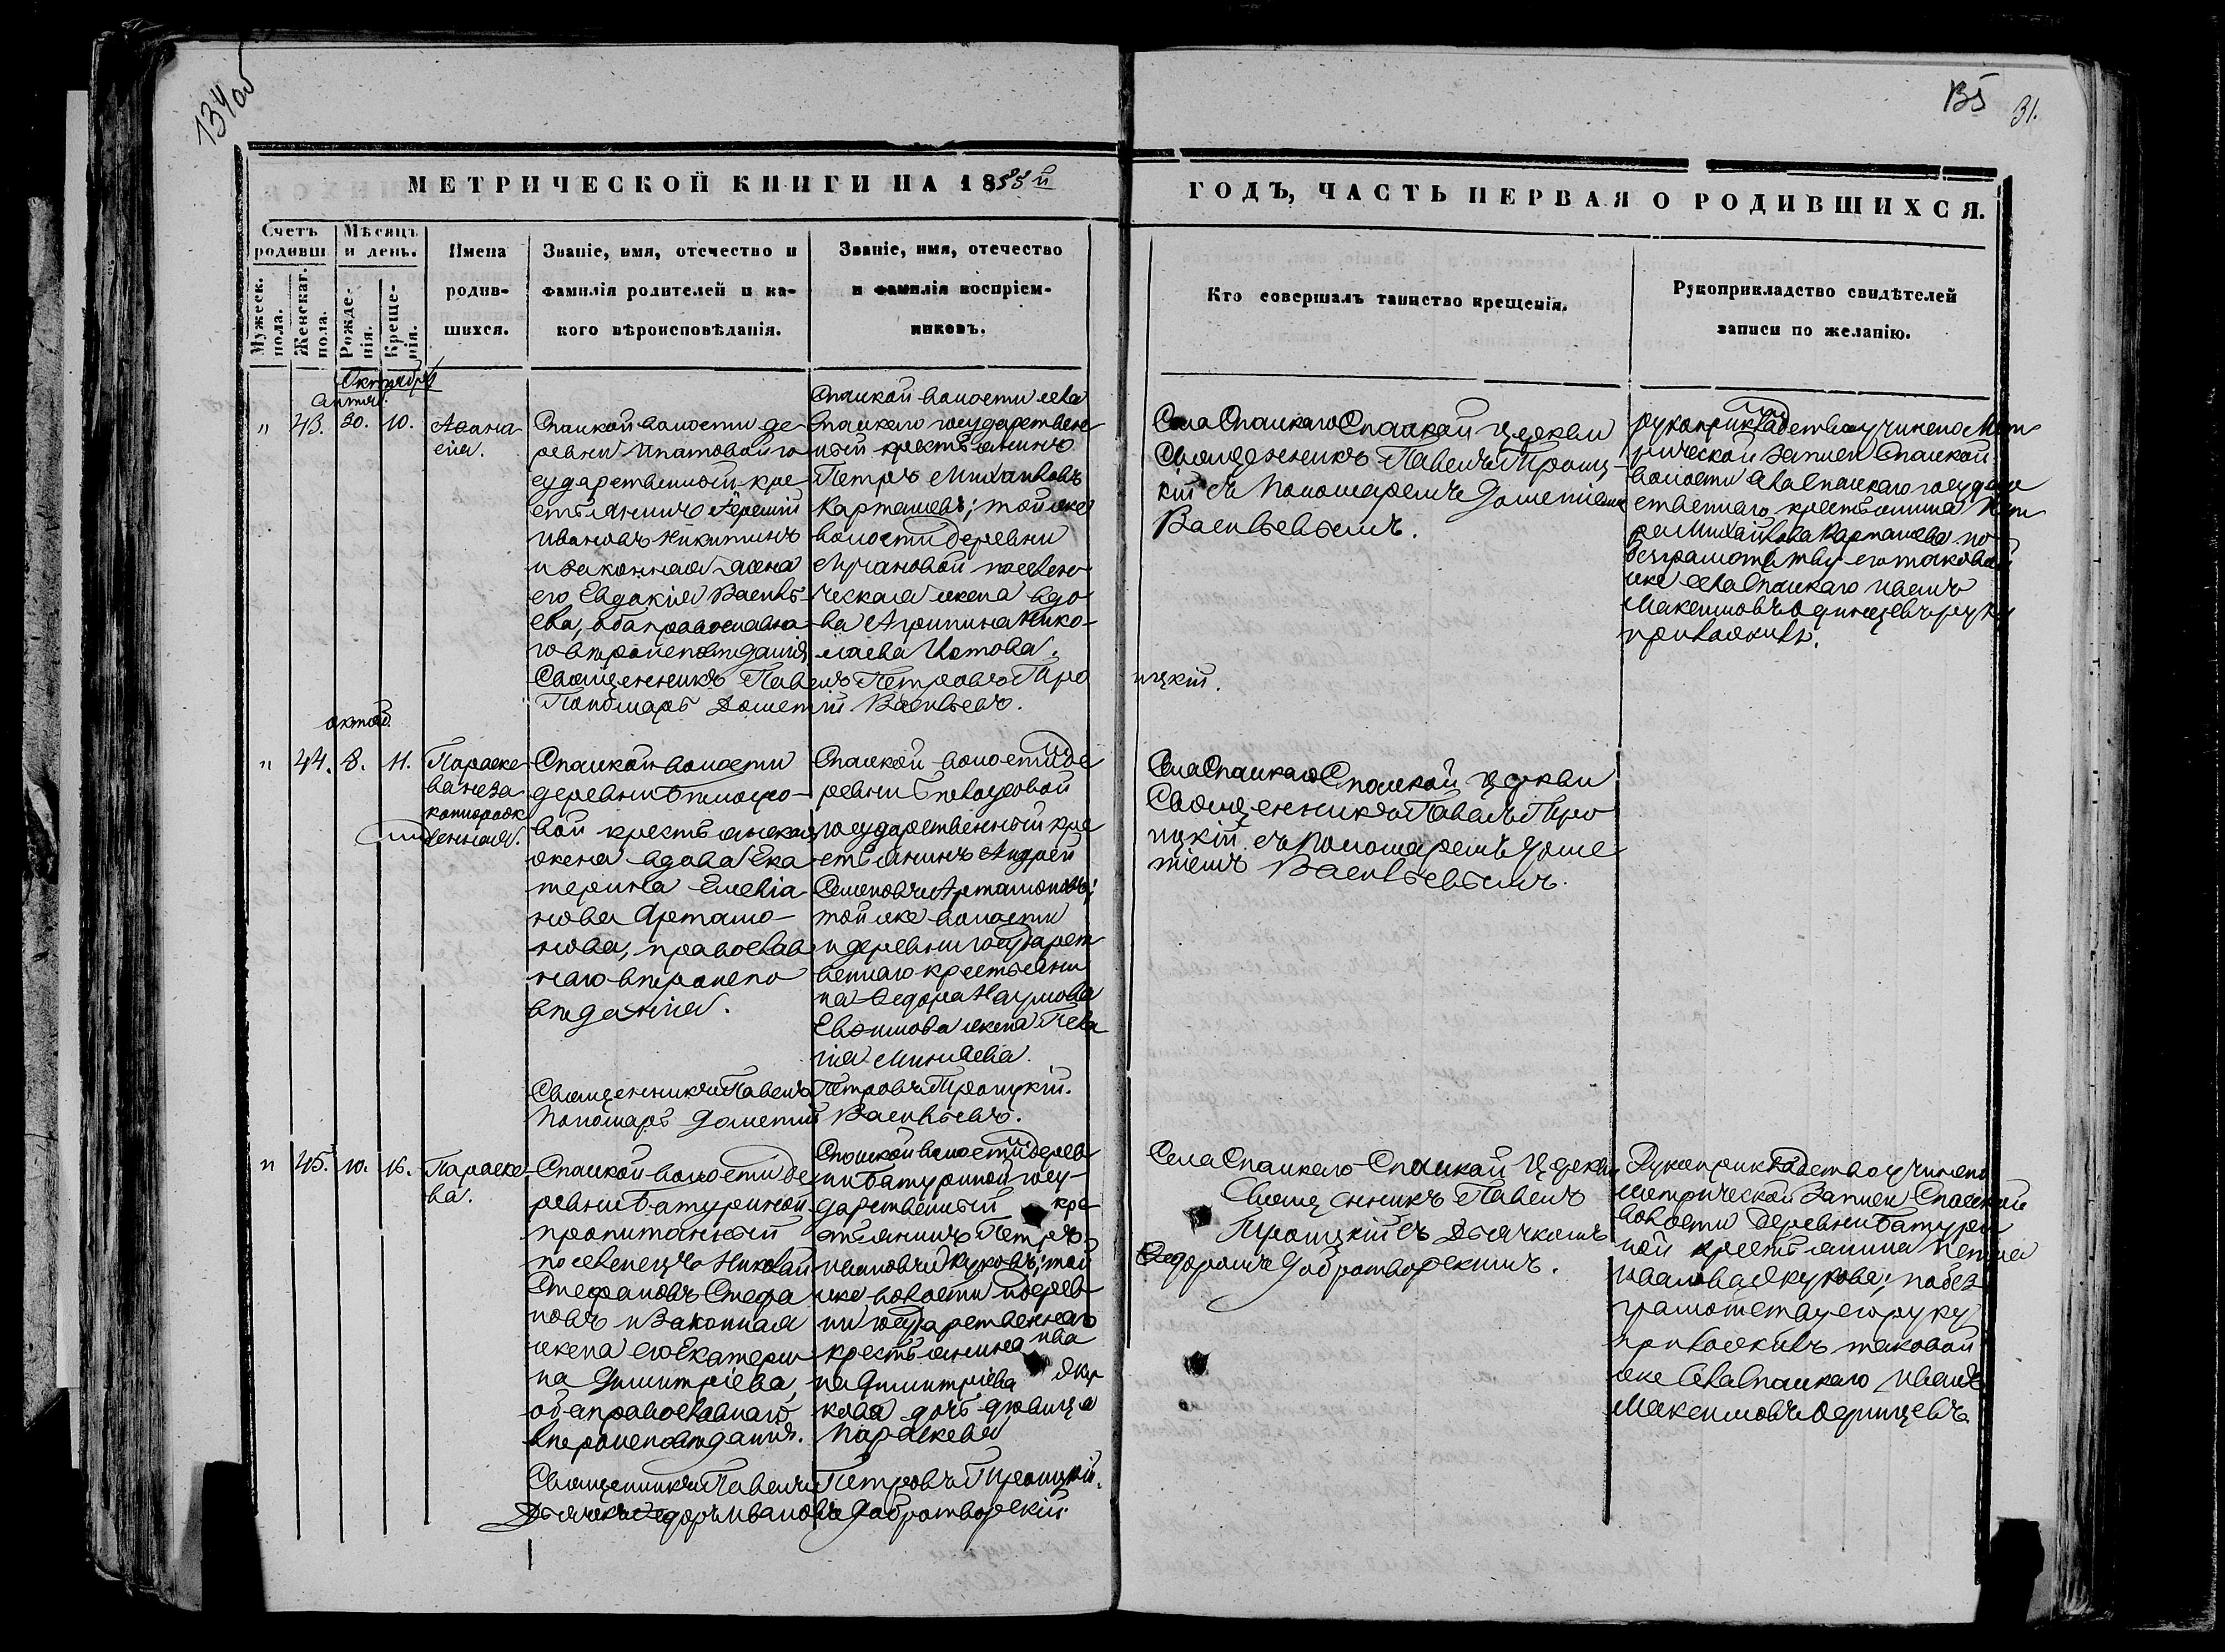 134 об
135
31.
МЕТРИЧЕСКОЙ КНИГИ НА 1855й
ГОДЪ, ЧАСТЬ ПЕРВАЯ О РОДИВШИХСЯ.
Счетъ родивш
Мужеск. пола.
Женскаг. пола.
Мѣсяцъ и день.
Рожде-
нія.
Креще-
нія.
Имена
родив-
шихся.
Званіе, имя, отечество и
фамилія родителей и ка-
кого вѣроисповѣданія.
Званіе, имя, отечество
и фамилія воспріем-
никовъ.
Кто совершалъ таинство крещенія.
Рукоприкладство свидѣтелей
записи по желанію.
Октября
"
43.
30.
10.
Аѳана-
сія.
Спаской волости де-
ревни Ипатовой го
сударственной кре
стьянинъ
Ивановъ Никитинъ
и законная жена
его Евдокія Василь-
ева, оба православна-
го вѣроисповѣданія
Спаской волости села
Спаскаго государствен
ный крестьянинъ
Петръ Михайловъ
Карташевъ; той же
волости деревни
поселен-
ческая жена вдо-
ва Агрипина Нико-
лаева
Священникъ Павелъ Петровъ Тро
ицкій.
Пономарь Дометій Васильевъ.
Села Спаскаго Спаской церкви
Священникъ Павелъ Троиц-
кій съ Пономаремъ Дометіемъ
Васильевымъ.
рукоприкладство учинено Мет
рической записи Спаской
волости села Спаскаго государ
ственнаго крестьянина Пет
ра Михайлова Карташева по
безграмотству его таковой
же села Спаскаго Иванъ
Максимовъ Одинцевъ руку
приложилъ.
октяб.
"
44.
8.
11.
Параске
ва неза
коннорож
денная.
Спаской волости
деревни
вой крестьянская
жена вдова Ека
терина
нова Артамо-
нова, православ
наго вѣроиспо
вѣданія.
Спаской волости де
ревни
государственный кре
стьянинъ Андрей
Семеновъ Артамоновъ;
той же волости
и деревни государст
веннаго крестьяни
на Ѳедора Наумова
Евѳимова жена Пела
гія Минаева.
Священникъ Павелъ Петровъ Троицкій.
Пономарь Дометій Васильевъ.
Села Спаскаго Спаской церкви
Священникъ Павелъ Тро
ицкій съ Пономаремъ Доме
тіемъ Васильевымъ.
"
45.
10.
16.
Параске-
ва.
Спаской волости де
ревни Батуриной
пропитанный
поселенецъ Николай
Стефановъ Стефа
новъ и законная
жена его Екатери
на Димитріева,
оба православнаго
вѣроисповѣданія.
Спаской волости дерев-
ни Батуриной госу-
дарственный кре
стьянинъ Петръ
Ивановъ Жуковъ; той
же волости и дерев
ни государственнаго
крестьянина Ива
на Димитріева Жу
кова дочь дѣвица
Параскева
Священникъ Павелъ Петровъ Троицкій.
Дьячекъ Ѳедоръ Ивановъ Добротворскій.
Села Спаскаго Спаской церкви
Священникъ Павелъ
Троицкій съ Дьячкомъ
Ѳедоромъ Добротворскимъ.
Рукоприкладство учинено
метрической записи Спаской
волости деревни Батури
ной крестьянина Петра
Иванова Жукова; по без
грамотству его руку
приложилъ таковой
же села Спаскаго Иванъ
Максимовъ Одинцевъ.